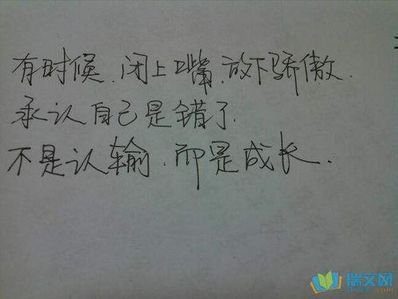 有时候.闭上嘴.放下骄傲.
承认自己是错了.
不是认输.而是成长.
瑞文网